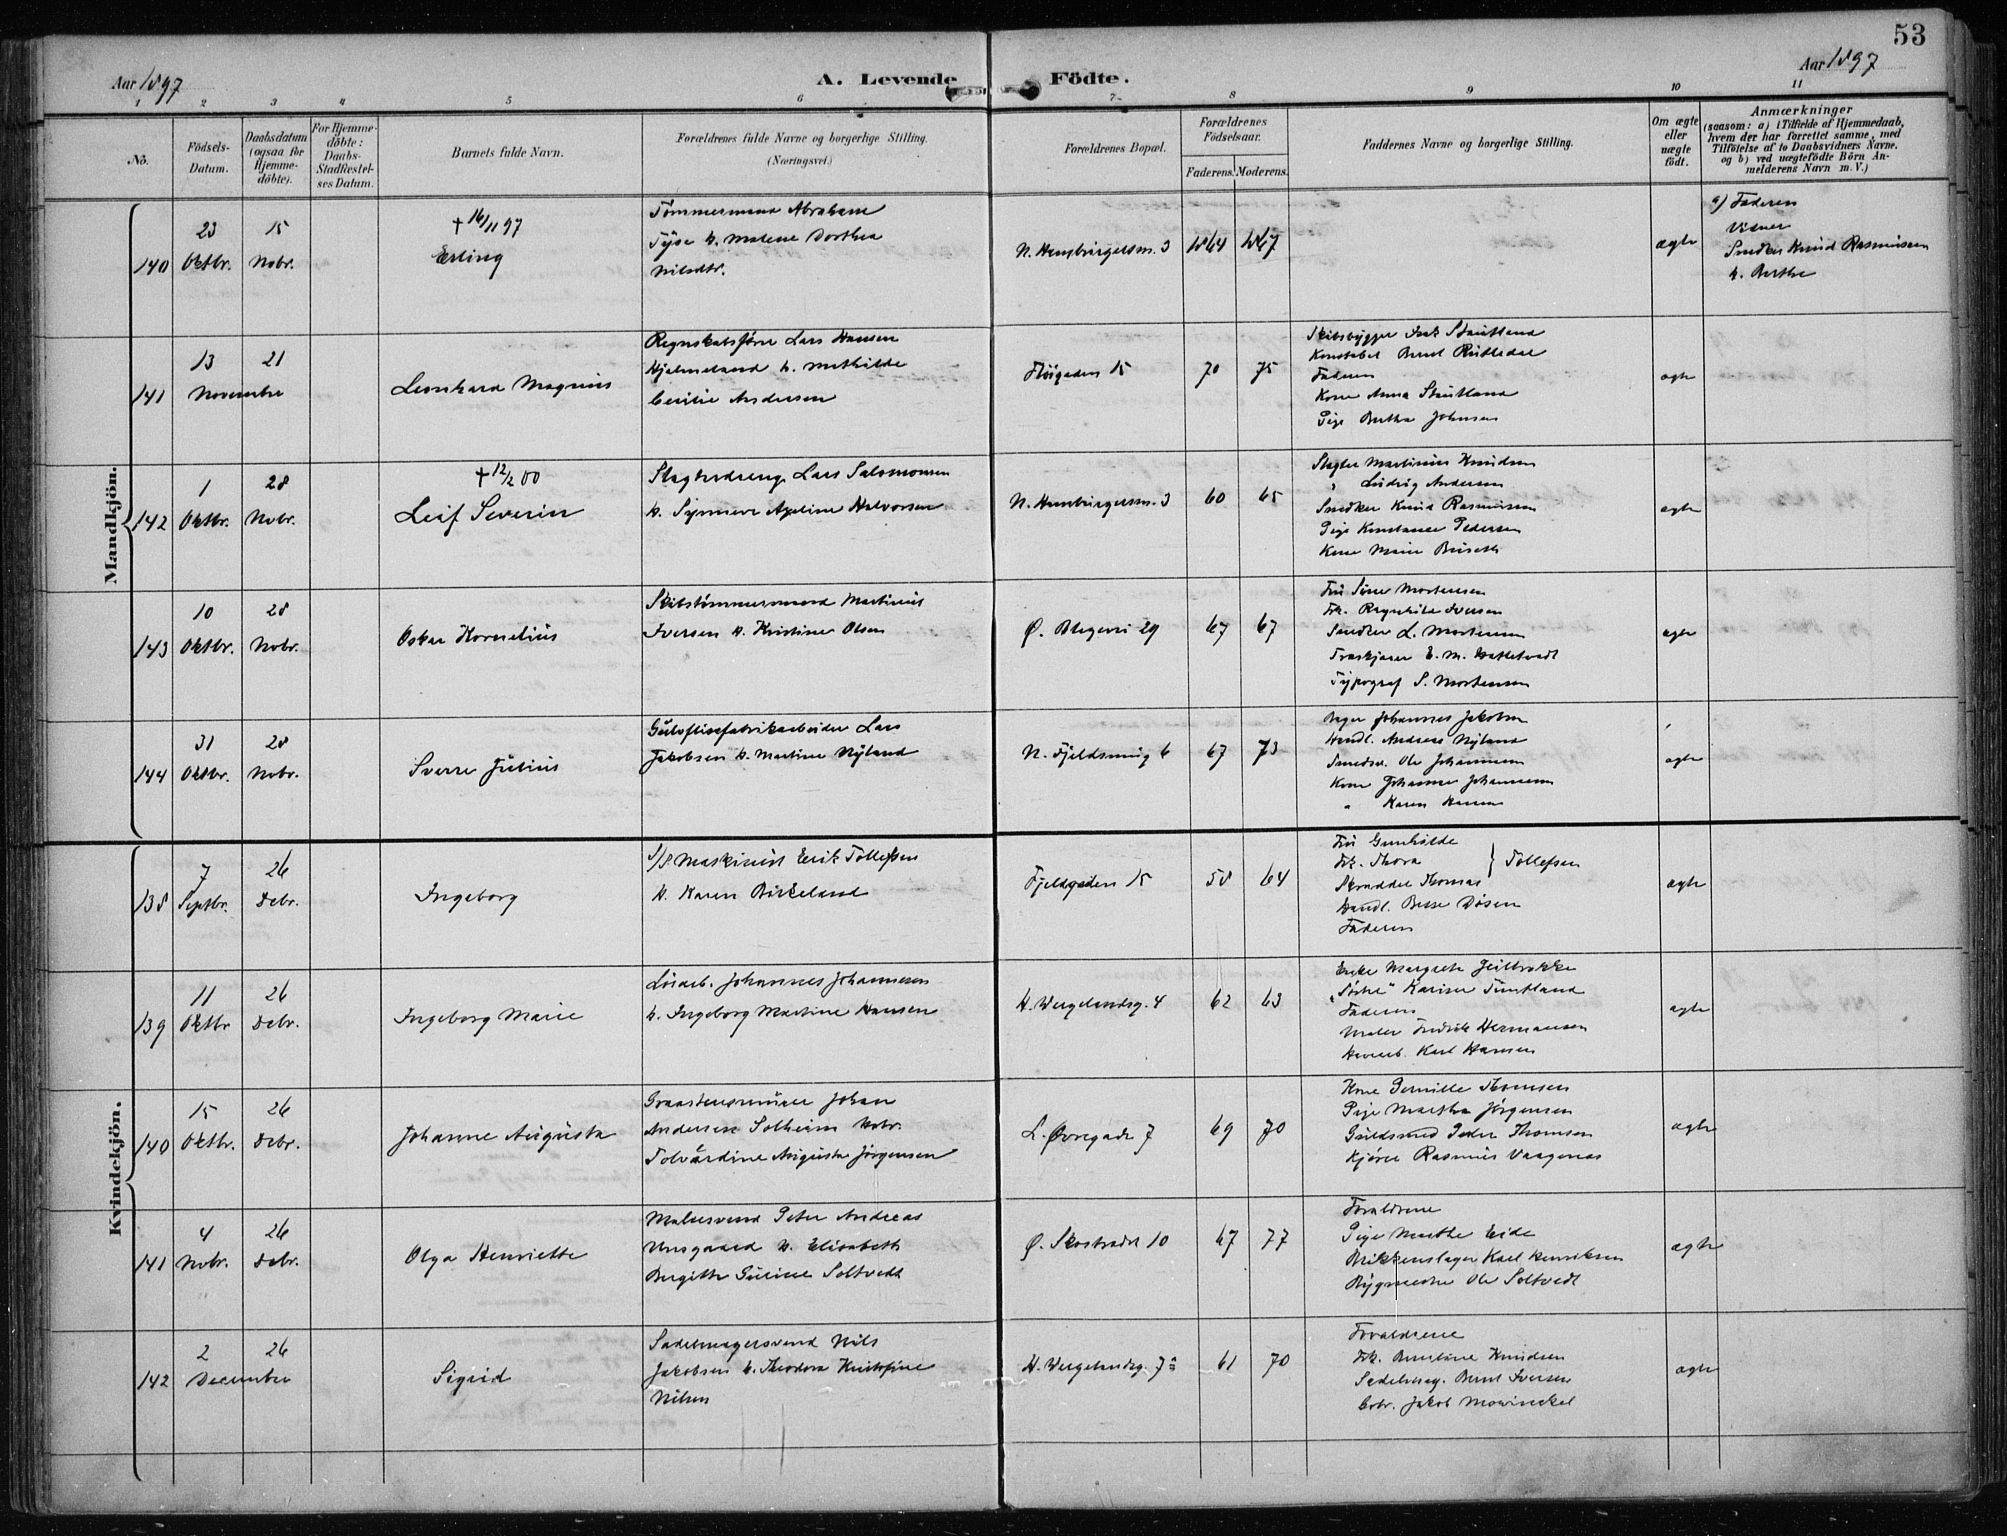 53
Aar 1897
A. Levende Födte.
Aar 1897
1 2 3 4 5 6 7 8 9 10 11
No.
Födsels-Datum.
Daabsdatum (ogsaa for Hjemme-döbte).
For Hjemme-döbte: Daabs-Stadfæstel-ses Datum.
Barnets fulde Navn.
Forældrenes fulde Navne og borgerlige Stilling.
(Næringsvei.)
Forældrenes Bopæl.
Forældrenes Födselsaar.
Faderens. Moderens.
Faddernes Navne og borgerlige Stilling.
Om ægte eller uægte födt.
Anmærkninger
(saasom: a) i Tilfælde af Hjemmedaab, hvem der har forrettet samme, med Tilföielse af to Daabsvidners Navne. og b) ved uægtefödte Börn An-melderens Navn m. V.)
Mandkjön.
140
23 Oktbr.
15 Nobr.
+ 16/11 97
Erling
Tømmermand Abraham
Tyse h. Malene Dorthea
Nilsdtr.
N. Hamburgersm. 3
1864
1867
ægte
a) Faderen
Vidner
Snedker Knud Rasmussen
h. Berthe
141
13 21
November
Leonhard Magnus
Regnskabsfører Lars Hansen
Hjelmeland h. Mathilde
Cecilie Andersen
Fløigaden 15
70
75
Skibsbygger Isak Stautland
Konstabel Bernt Rutledal
Faderen
Kone Anna Stautland
Pige Bertha Johnsen
ægte
142
1 Oktbr.
28 Nobr.
+ 12/2 00
Leif Severin
Slagterdreng Lars Salomonsen
h. Synneve Halvorsen
N. Hamburgersm. 3
60
65
Slagter Martinus Knudsen
" Ludvig Andersen
Snedker Knud Rasmussen
Pige Konstance Pedersen
Kone Marie
ægte
143
10 Oktbr.
28 Nobr.
Oskar Kornelius
Skibstømmermand Martinus
Iversen h. Kristine Olsen
Ø. Blegevei 29
67
67
Fru Sine Mortensen
Frk. Ragnhild Iversen
Snedker L. Mortensen
E. M.
Typograf S. Mortensen
ægte
144
31 Oktbr.
28 Nobr.
Sverre Julius
Lars
Jakobsen h. Martine Nyland
N. Fjeldsmug 6
67
73
Johannes Jakobsen
Handl. Andreas Nyland
Snedsv. Ole Johannesen
Kone Johanne Johannesen
" Karen Hansen
ægte
Kvindekjön.
138
7 Septbr.
26 Debr.
Ingeborg
D/S Maskinist Erik Tollefsen
h. Karen Birkeland
Fjeldgaden 15
58
64
Fru Gunhilde
Frk. Thora } Tollefsen
Skrædder Thomas
Handl. Døsen
Faderen
ægte
139
11 Oktbr
26 Debr.
Ingeborg Marie
Løsarb. Johannes Johannesen
h. Ingeborg Martine Hansen
H. Wergelandsg. 4
62
63
Enke Margrete
Faderen
Maler Fredrik Hermansen
Karl Hansen
ægte
140
15 Oktbr.
26 Debr.
Johanne Augusta
Graastensmurer Johan
Andersen Solheim
Augusta Jørgensen
L. Øvregade 7
69
70
Kone Pernille Thomsen
Pige Martha Jørgensen
Guldsmed Peder Thomsen
Kjører Rasmus Vaagenæs
ægte
141
4 Nobr.
26 Debr.
Olga Henriette
Malersvend Peter Andreas
h. Elisabeth
Birgitte Soltvedt
Ø. Skostrædet 10
67
77
Forældrene
Pige Marthe Eide
Blikkenslager Karl Henriksen
Bygmester Ole Soltvedt
ægte
142
2 26
December
Sigrid
Sadelmagersvend Nils
Jakobsen h. Theodora Kristofine
Nilsen
H. Wergelandsg. 7a
61
70
Forældrene
Frk. Berntine Knudsen
Sadelmag. Bernt Iversen
Jakob Mowinckel
ægte